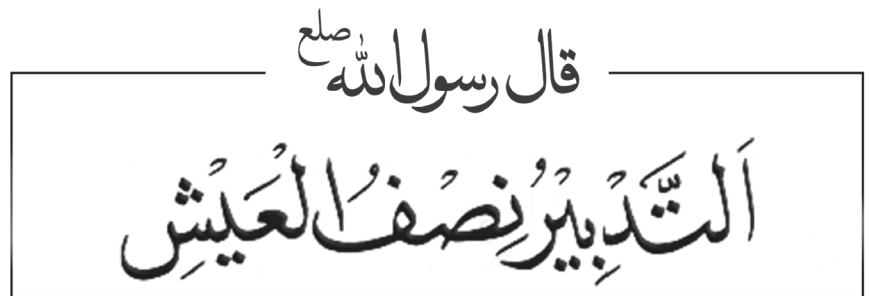 قال رسول الله صلع
اَلتَّدْبِيْرُ نِصْفُ الْعَيْشِ